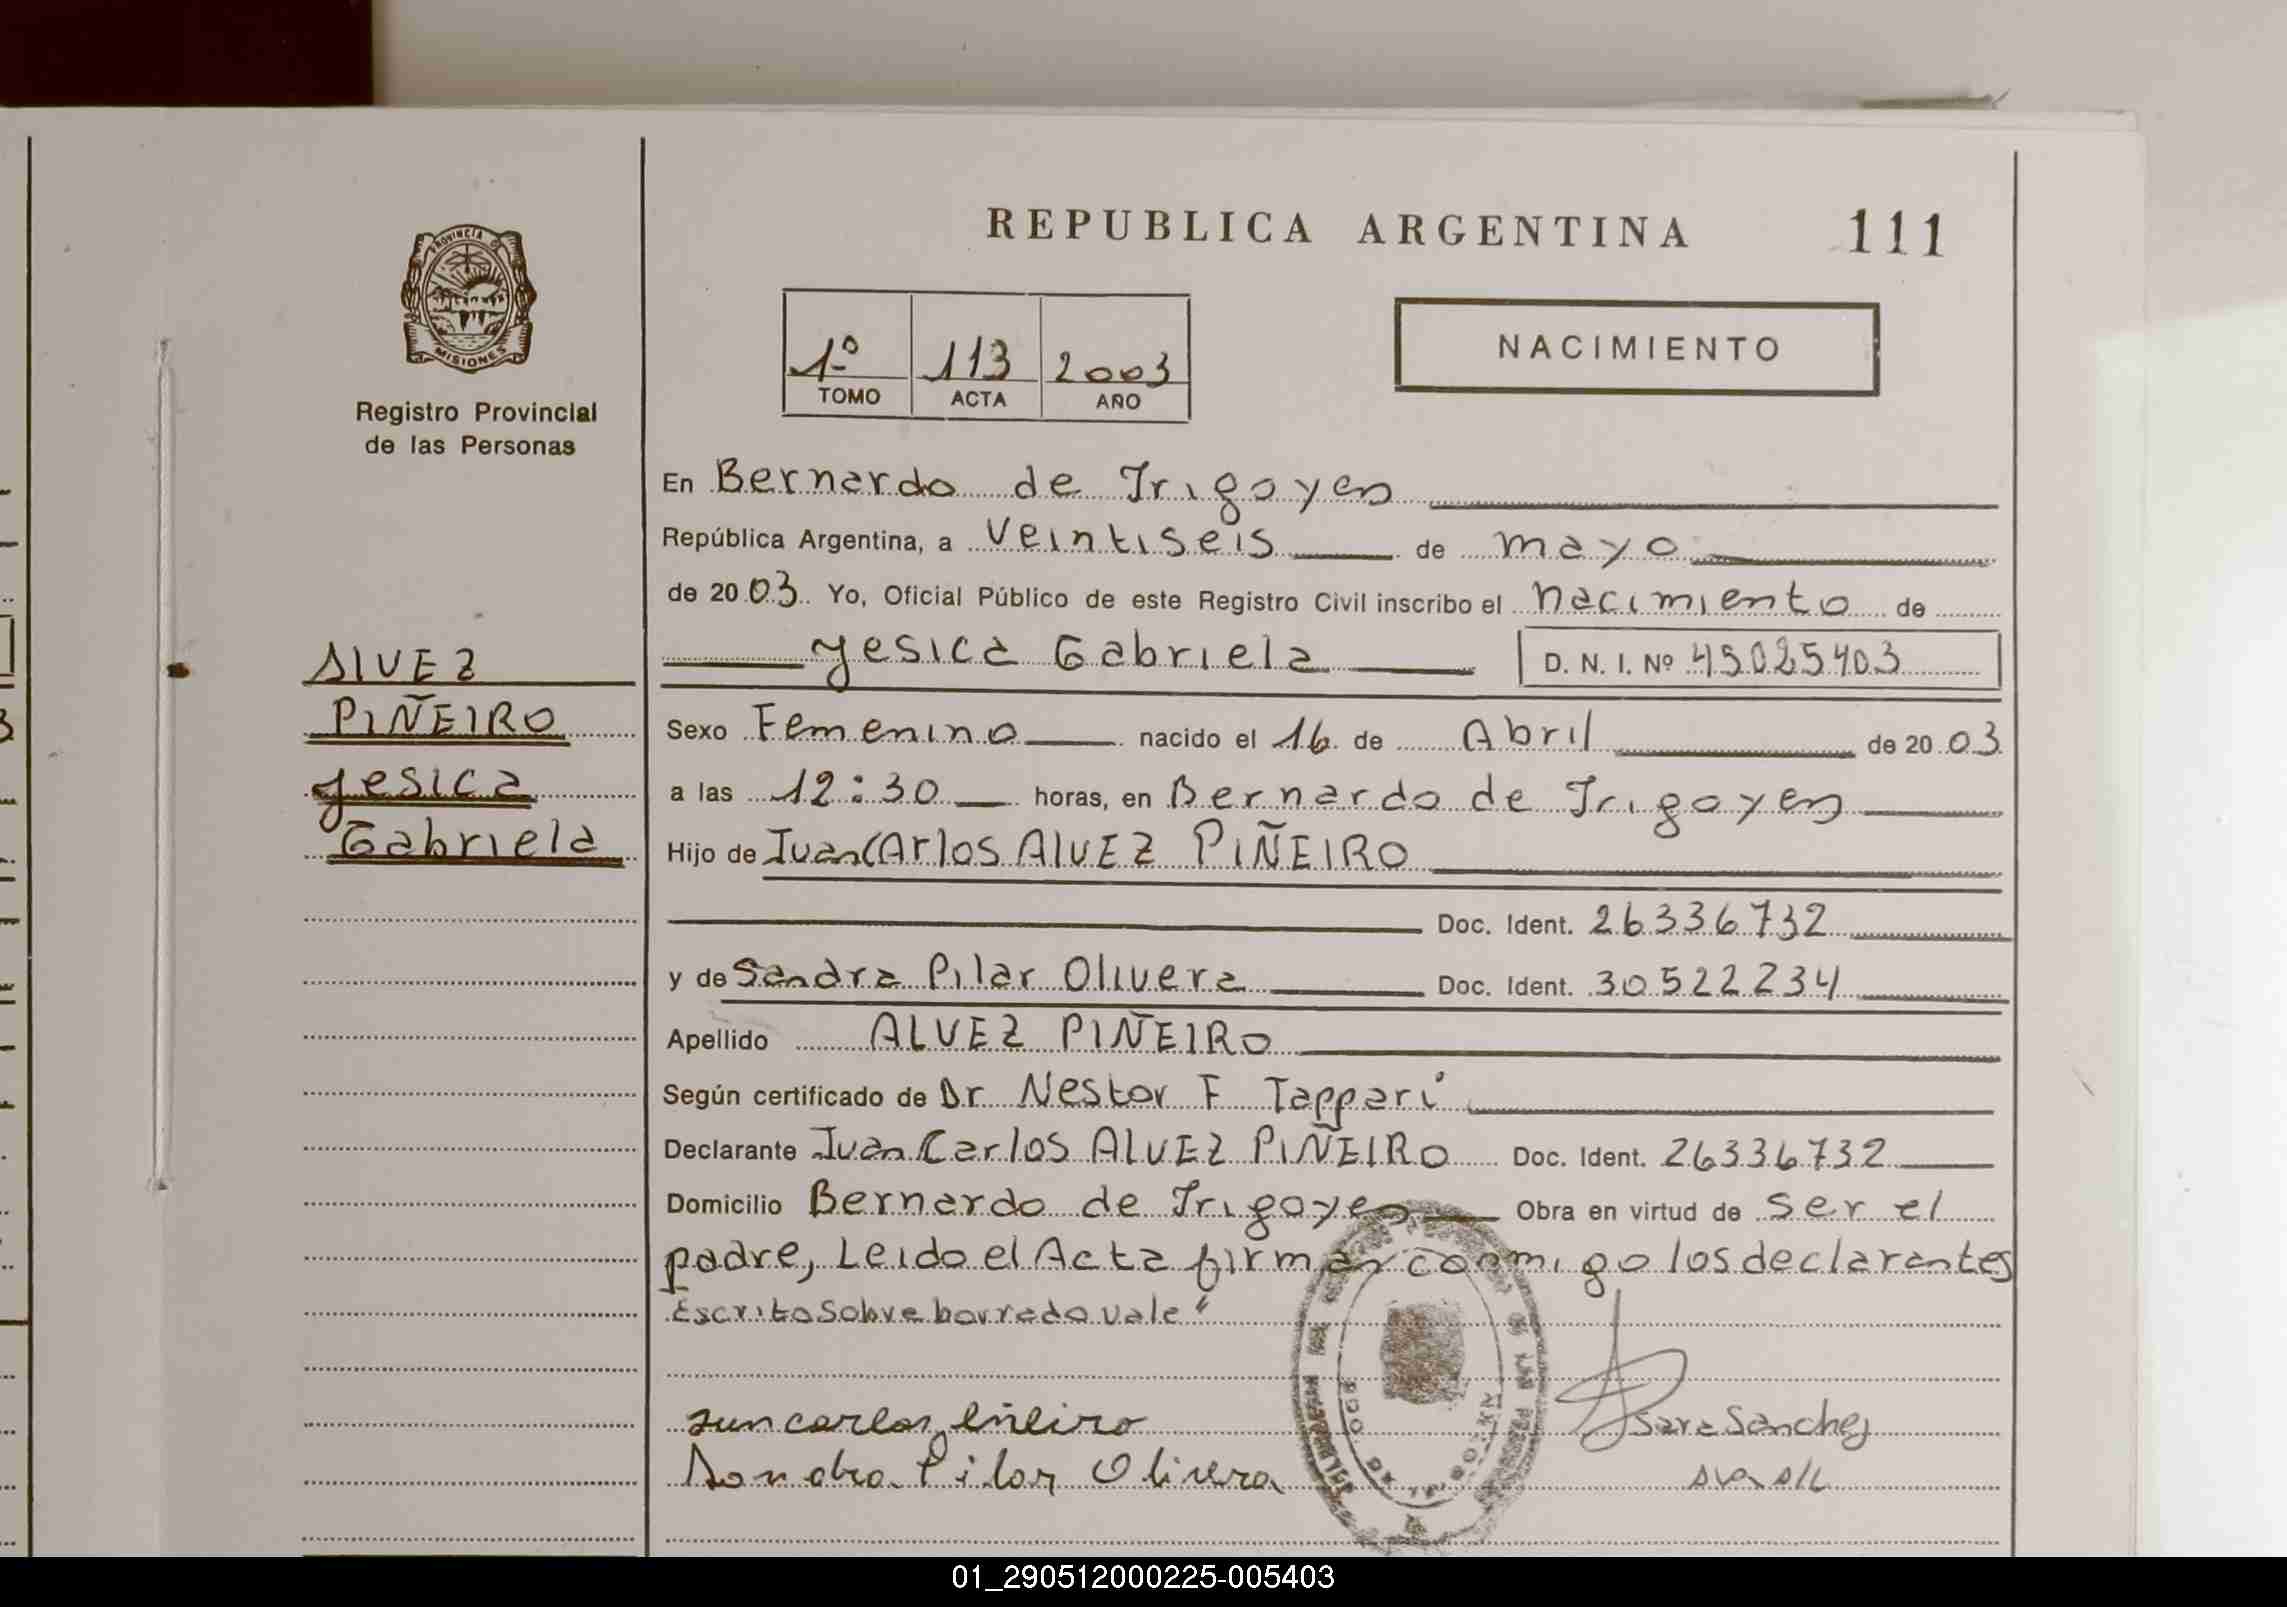 REPUBLICA ARGENTINA 111
PROVINCIA D
MISIONES
Registro Provincial
de las Personas
1º 113 2003
TOMO ACTA AÑO
NACIMIENTO
En Bernardo de Irigoyen
República Argentina, a Veintiseis de mayo
de 2003 Yo, Oficial Público de este Registro Civil inscribo el nacimiento de
Yesica Gabriela D. N. I. Nº 45025403
AlVEZ
PIÑEIRO
Yesica
Gabriela
Sexo Femenino nacido el 16 de Abril de 2003
a las 12:30 horas, en Bernardo de Irigoyen
Hijo de Juan CArlos AlVEZ PIÑEIRO
Doc. Ident. 26336732
y de Sandra Pilar Olivera Doc. Ident. 30522234
Apellido ALVEZ PIÑEIRO
Según certificado de Dr Nestor F Tappari
Declarante Juan Carlos AlVEZ PIÑEIRO Doc. Ident. 26336732
Domicilio Bernardo de Irigoyen Obra en virtud de ser el
padre, Leido el Acta firman conmigo los declarantes
Escrito Sobre borrado vale"
Juncarlos Piñeiro
Sandra Pilar Olivera
Sara Sanchez
01_290512000225-005403